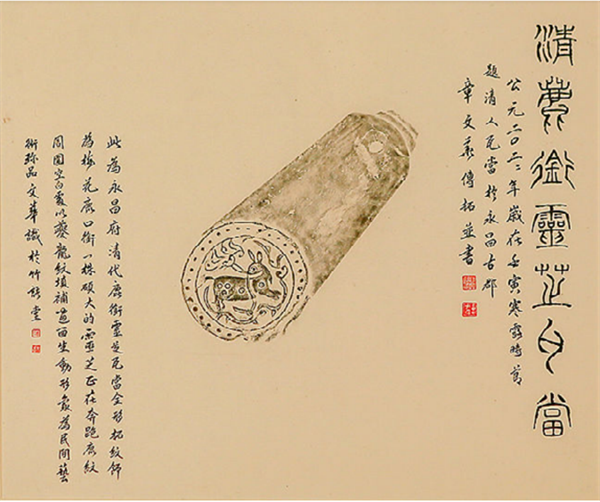 清鹿銜靈芝瓦當
公元二〇二二年歲在壬寅寒露時節
題清人瓦當於永昌古郡
章文華傳拓並書
此為永昌府清代鹿銜靈芝瓦當全形拓紋飾
為梅花鹿口銜一株碩大的靈芝正在奔跑鹿紋
周圍空白處以夔龍紋填補畫面生動形象為民間藝
術珍品文華識於竹堂